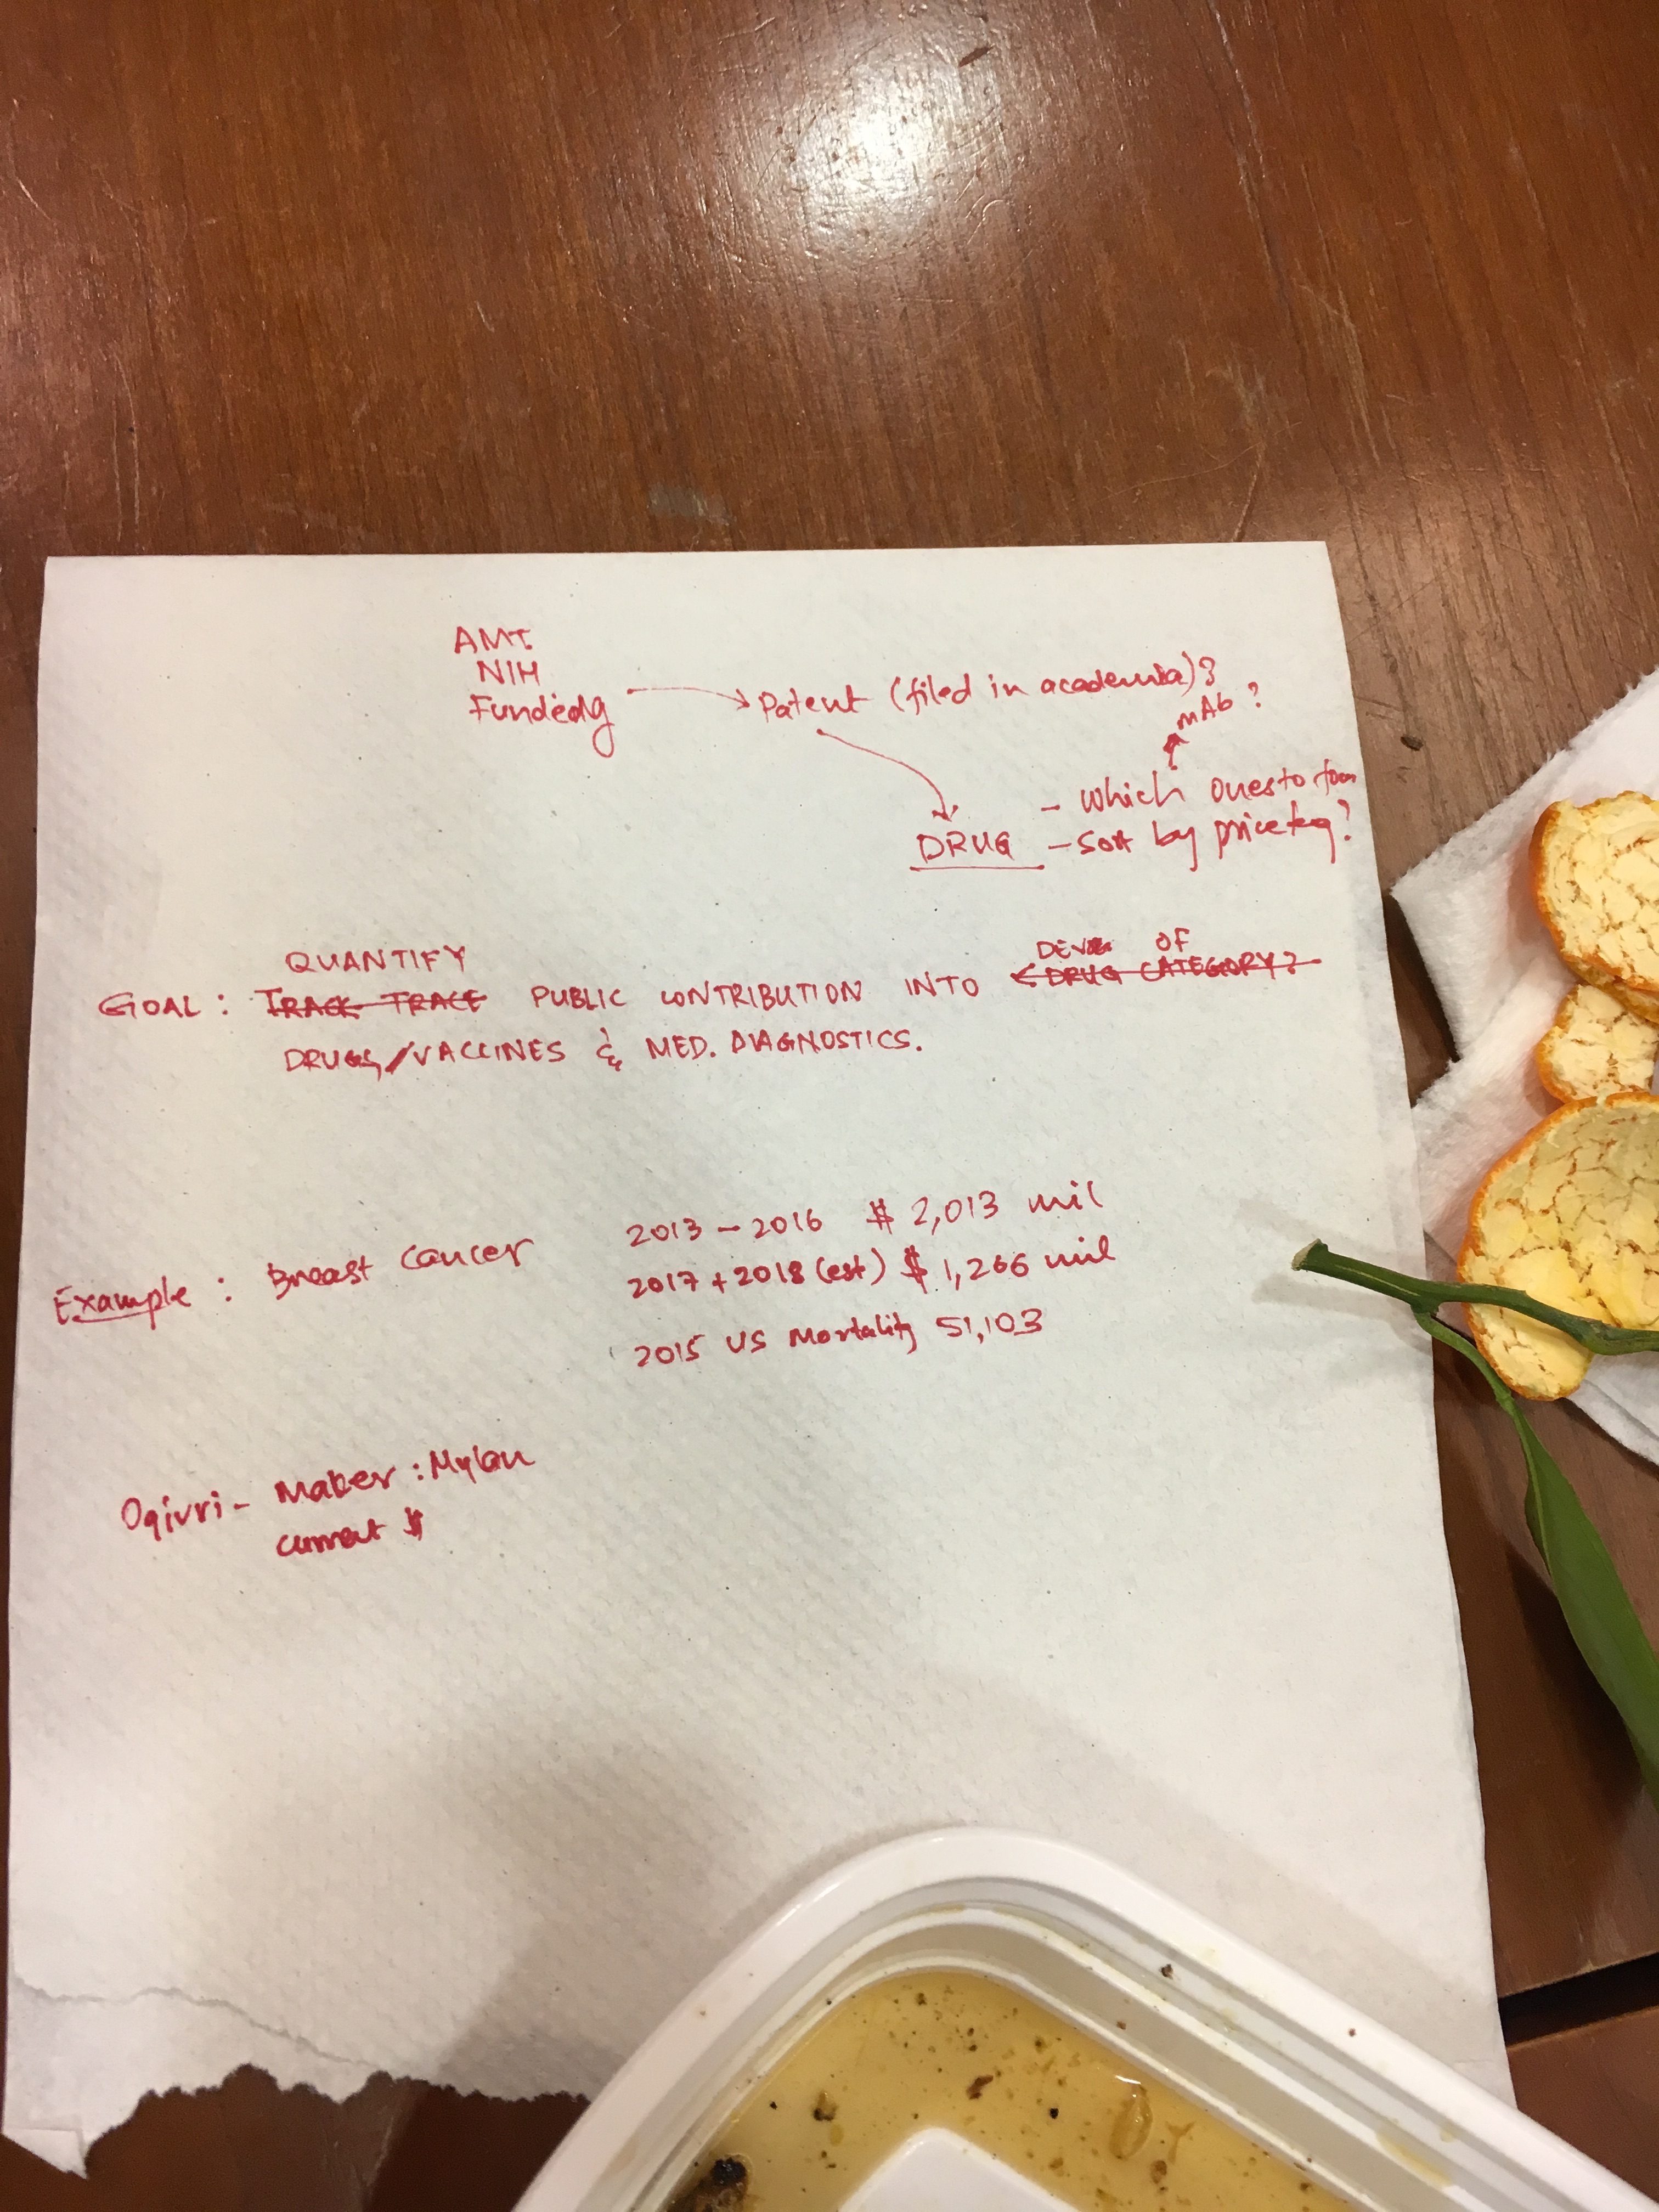 AMT.
NIH
Funding → Patent (filed in academia)?
mAb ?
- Which ones to focus
DRUG - Sort by price tag?
QUANTIFY DEV OF
GOAL : TRACK TRACE PUBLIC CONTRIBUTION INTO DRUG CATEGORY?
DRUGS/VACCINES & MED. DIAGNOSTICS.
Example : Breast Cancer 2013 - 2016 $ 2,013 mil
2017 + 2018 (est) $ 1,266 mil
2015 US Mortality 51,103
Ogivri - Maker : Mylan
current $